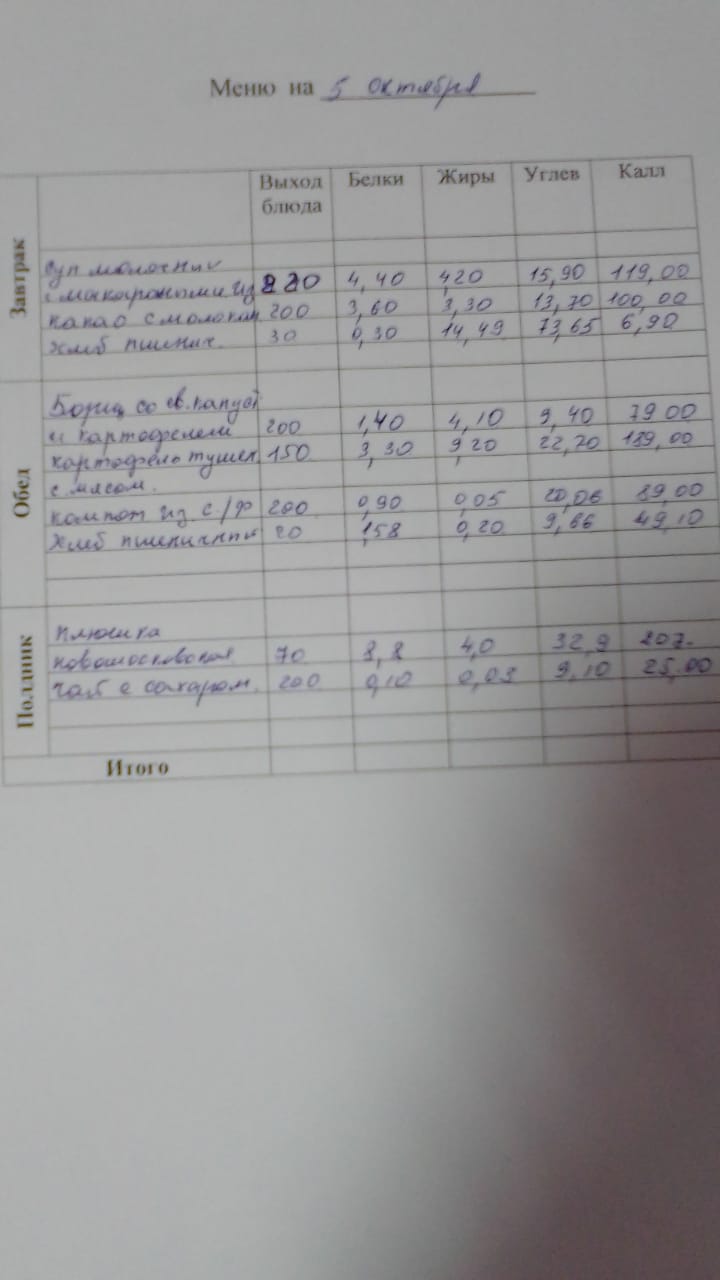 Меню на 5 октября
Выход блюда Белки Жиры Углев Калл
Завтрак
Суп молочний
с макаронами из 220 4,40 420 15,90 119,00
какао с молоком 200 3,60 3,30 13,70 100,00
хлеб пшенич. 30 0,30 14,49 73,65 6,90
Обед
Борщ со св. капуст
и картофелем 200 1,40 4,10 9,40 79 00
картофель тушен. 150 3,30 9,20 22,70 189,00
с мясом.
компот из с/ф 200 0,90 0,05 20,06 89,00
Хлеб пшеничный 20 1,58 0,20 9,66 49,10
Полдник
плюшка
новомосковская 70 8,8 4,0 32,9 207.
чай с сахаром. 200 0,10 0,03 9,10 25,00
Итого